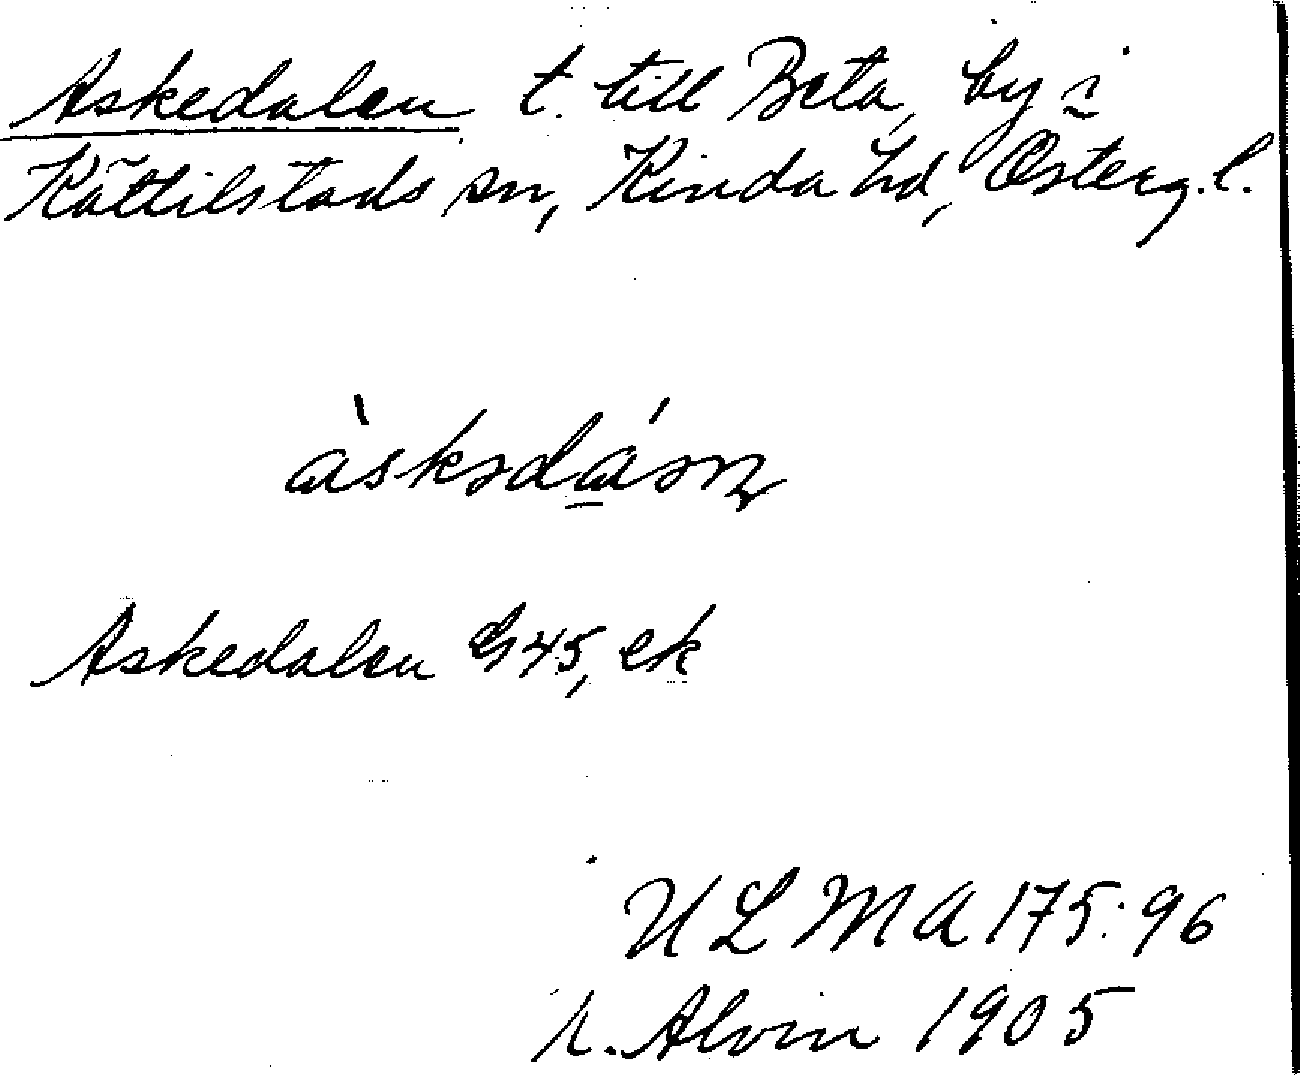 Askedalen t. till Beta, by i
Kättilstads sn, Kinda hd, Österg. l.
Askedalen G45, ek
ULMA 175:96
A. Alvin 1905